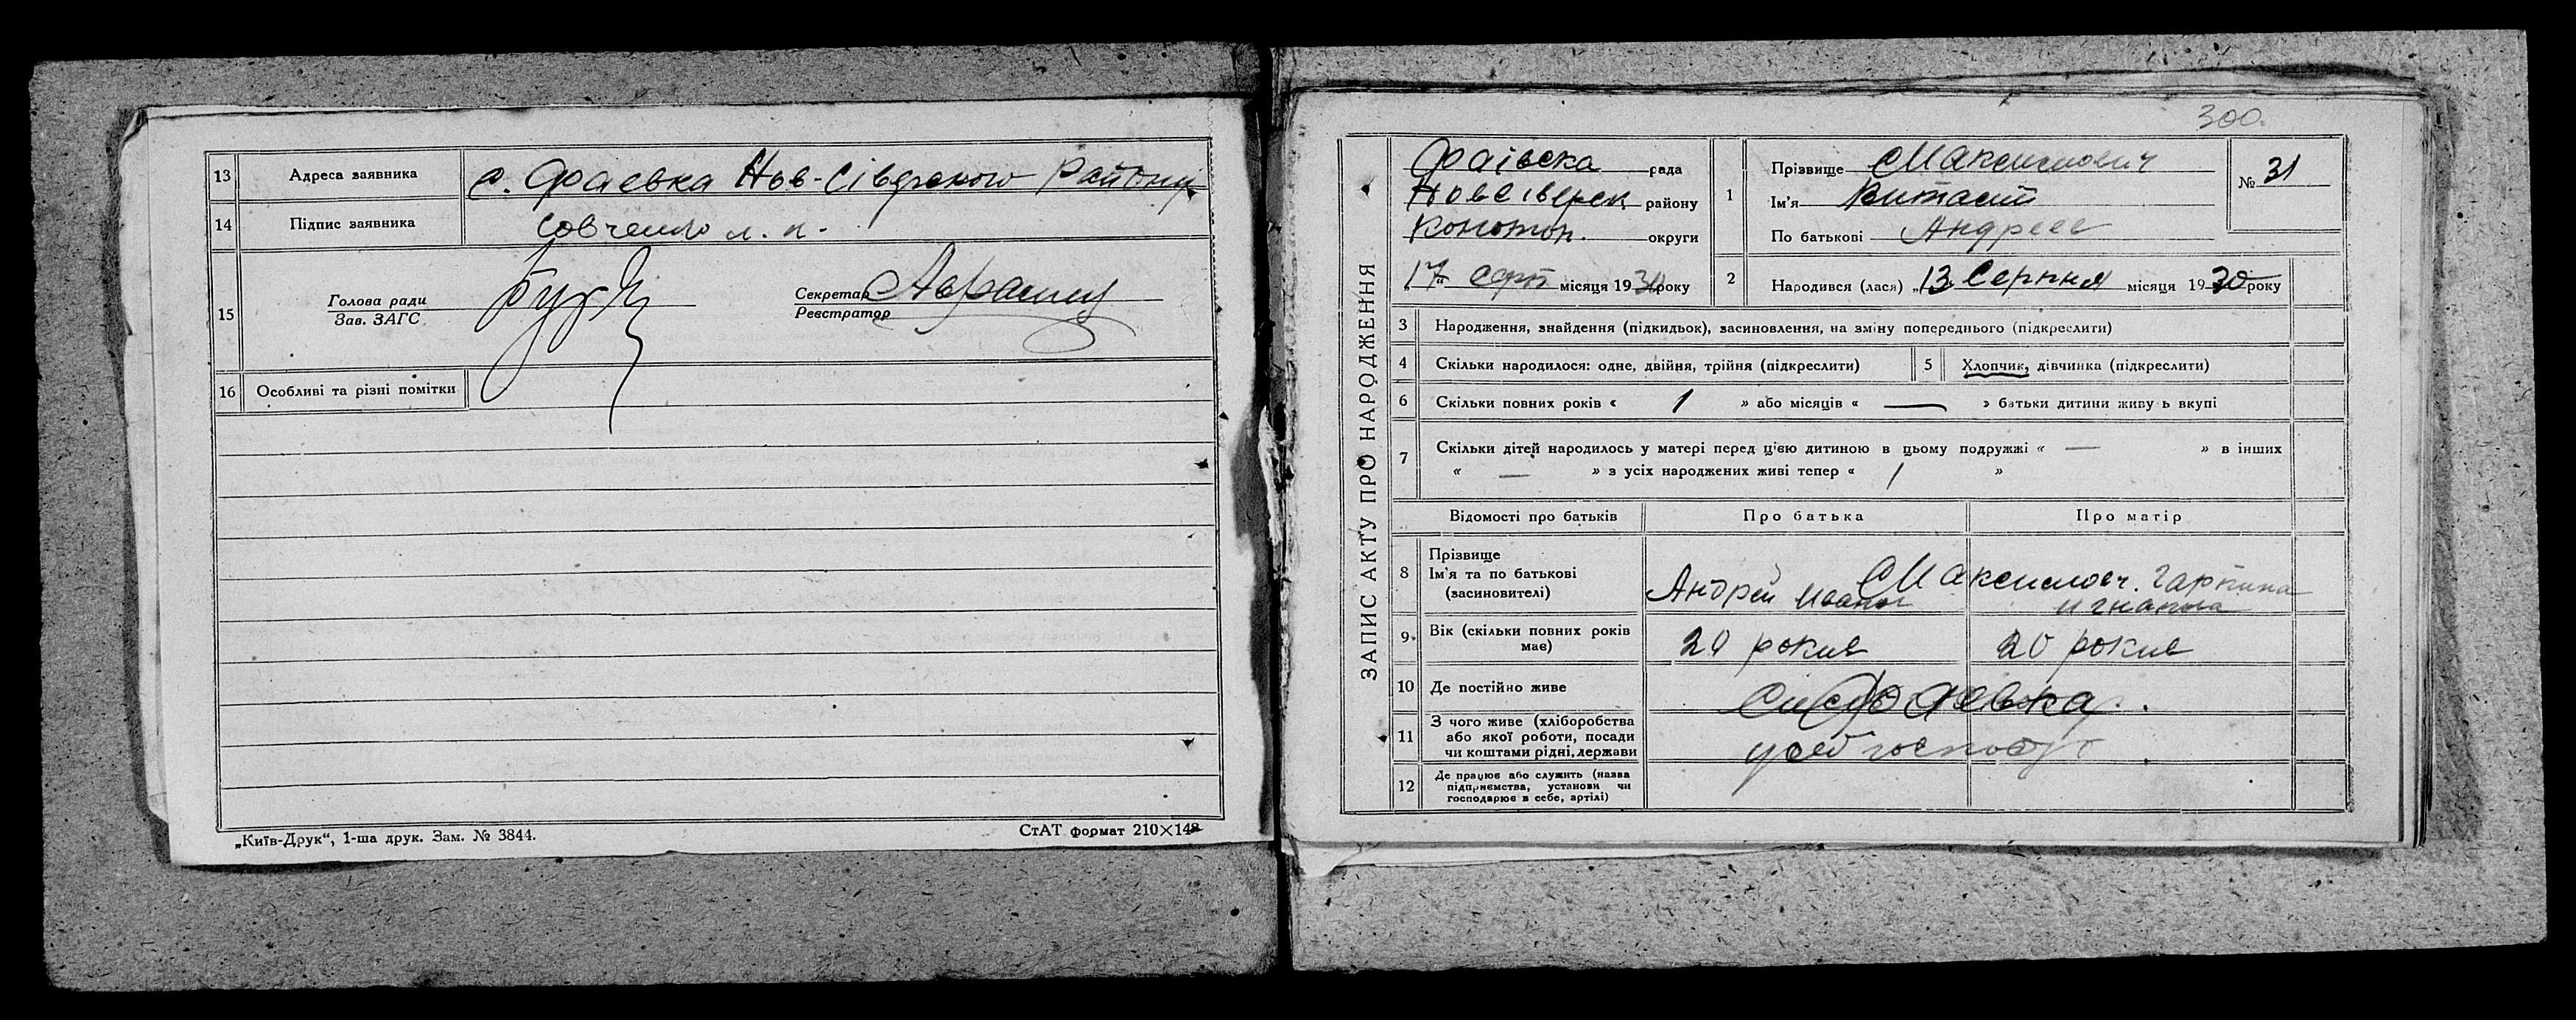 13 Адреса заявника с. Фаевка Нов-Сіверского Району
14 Підпис заявника Совченко
15 Голова ради
Зав. ЗАГС
Секретар
Реєстратор
16 Особливі та різні помітки
„Київ-Друк“, 1-ша друк. Зам. № 3844.
СтАТ формат 210×148
300.
ЗАПИС АКТУ ПРО НАРОДЖЕННЯ
Фаівска рада
Новсіверск району
Конотоп. округи
„17“ серп місяця 1930 року
1 Прізвище Максимович
Ім'я Виталий
По батькові Андреев
№ 31
2 Народився (лася) „13 Серпня місяця 1930 року
3 Народження, знайдення (підкидьок), засиновлення, на зміну попереднього (підкреслити)
4 Скільки народилося: одне, двійня, трійня (підкреслити)
5 Хлопчик, дівчинка (підкреслити)
6 Скільки повних років « 1 » або місяців « — » батьки дитини живуть вкупі
7 Скільки дітей народилось у матері перед цією дитиною в цьому подружжі « — » в інших
« — » з усіх народжених живі тепер « 1 »
Відомості про батьків Про батька Про матір
8 Прізвище
Ім'я та по батькові
(засиновителі)
Максимович. Гарпина
Андрей Иванов Игнатова
9. Вік (скільки повних років
має)
20 рокив 20 рокив
10 Де постійно живе Фаевка.
11 З чого живе (хліборобства
або якої роботи, посади
чи коштами рідні, держави
12 Де працює або служить (назва
підприємства, установи чи
господарює в себе, артілі)